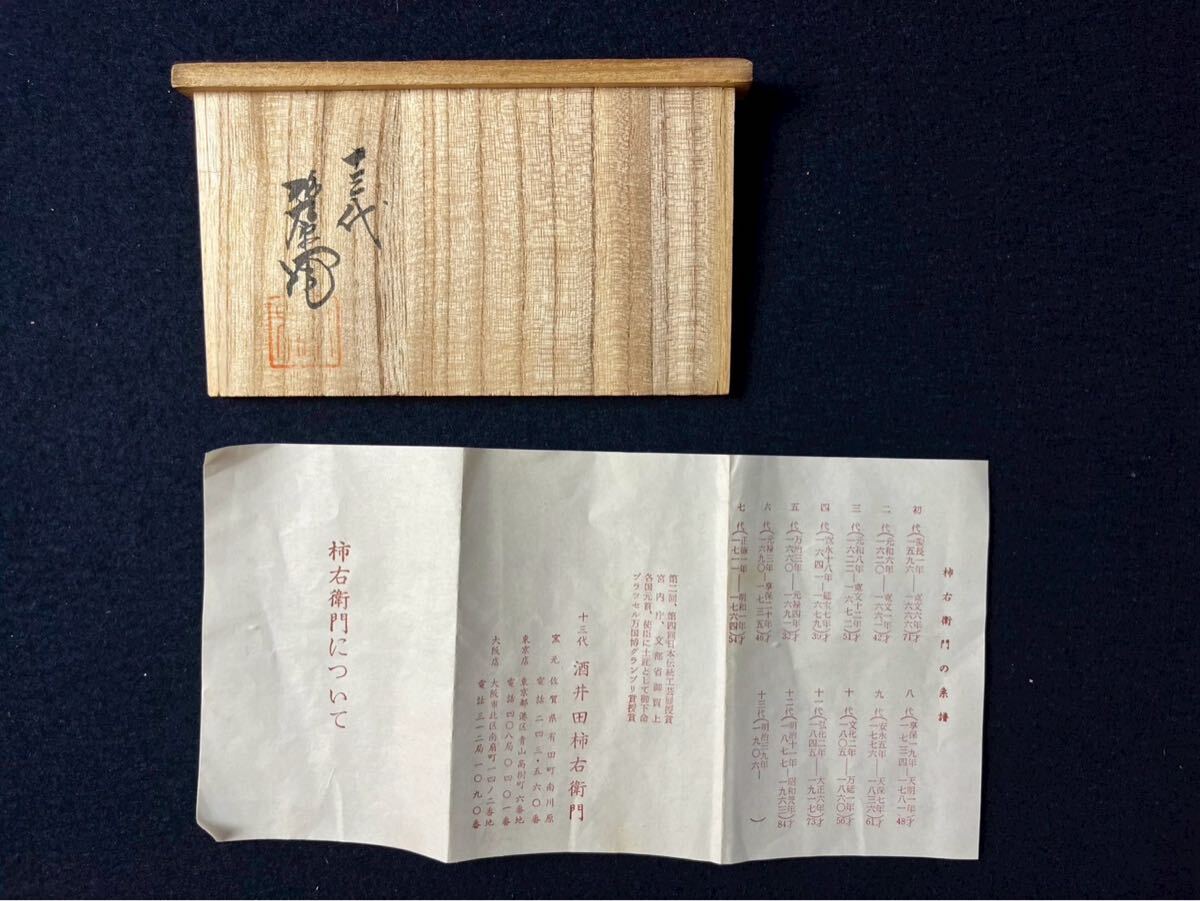 十三代
柿右衛門
柿右衛門の系譜
初代(慶長一年 一五九六 ― 寛文六年 一六六六)71才
二代(元和六年 一六二〇 ― 寛文一年 一六六一)42才
三代(元和八年 一六二二 ― 寛文十二年 一六七二)51才
四代(寛永十八年 一六四一 ― 延宝七年 一六七九)39才
五代(万治三年 一六六〇 ― 元禄四年 一六九一)32才
六代(元禄三年 一六九〇 ― 享保二十年 一七三五)46才
七代(正徳一年 一七一一 ― 明和一年 一七六四)54才
八代(享保一九年 一七三四 ― 天明一年 一七八一)48才
九代(安永五年 一七七六 ― 天保七年 一八三六)61才
十代(文化二年 一八〇五 ― 万延一年 一八六〇)56才
十一代(弘化二年 一八四五 ― 大正六年 一九一七)73才
十二代(明治十一年 一八七七 ― 昭和卅年 一九六三)84才
十三代(明治三九年 一九〇六 ― )
第二回、第四回日本伝統工芸展授賞
宮内庁、文部省御買上
各国元首、使臣に土産として御下命
ブラッセル万国博グランプリ賞授賞
十三代 酒井田柿右衛門
窯元 佐賀県有田町南川原
電話 二四三・五六〇番
東京店 東京都港区青山高樹町六番地
電話 四〇八局 〇四〇一番
大阪店 大阪市北区南扇町一四ノ二番地
電話 三一二局 一〇九〇番
柿右衛門について